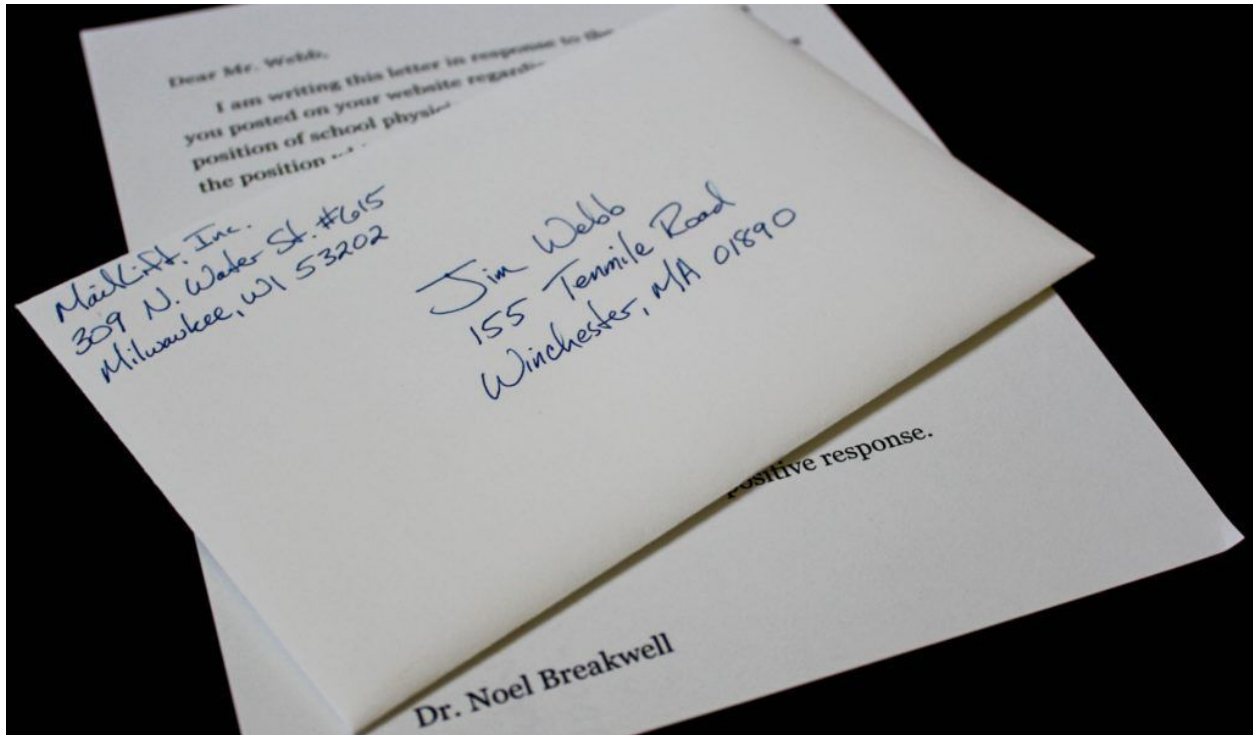 Dear Mr. Webb,
I am writing this letter in response to the
you posted on your website regarding
position of school physici
the position
MailLift, Inc.
309 N. Water St. #615
Milwaukee, WI 53202
Jim Webb
155 Tenmile Road
Winchester, MA 01890
positive response.
Dr. Noel Breakwell